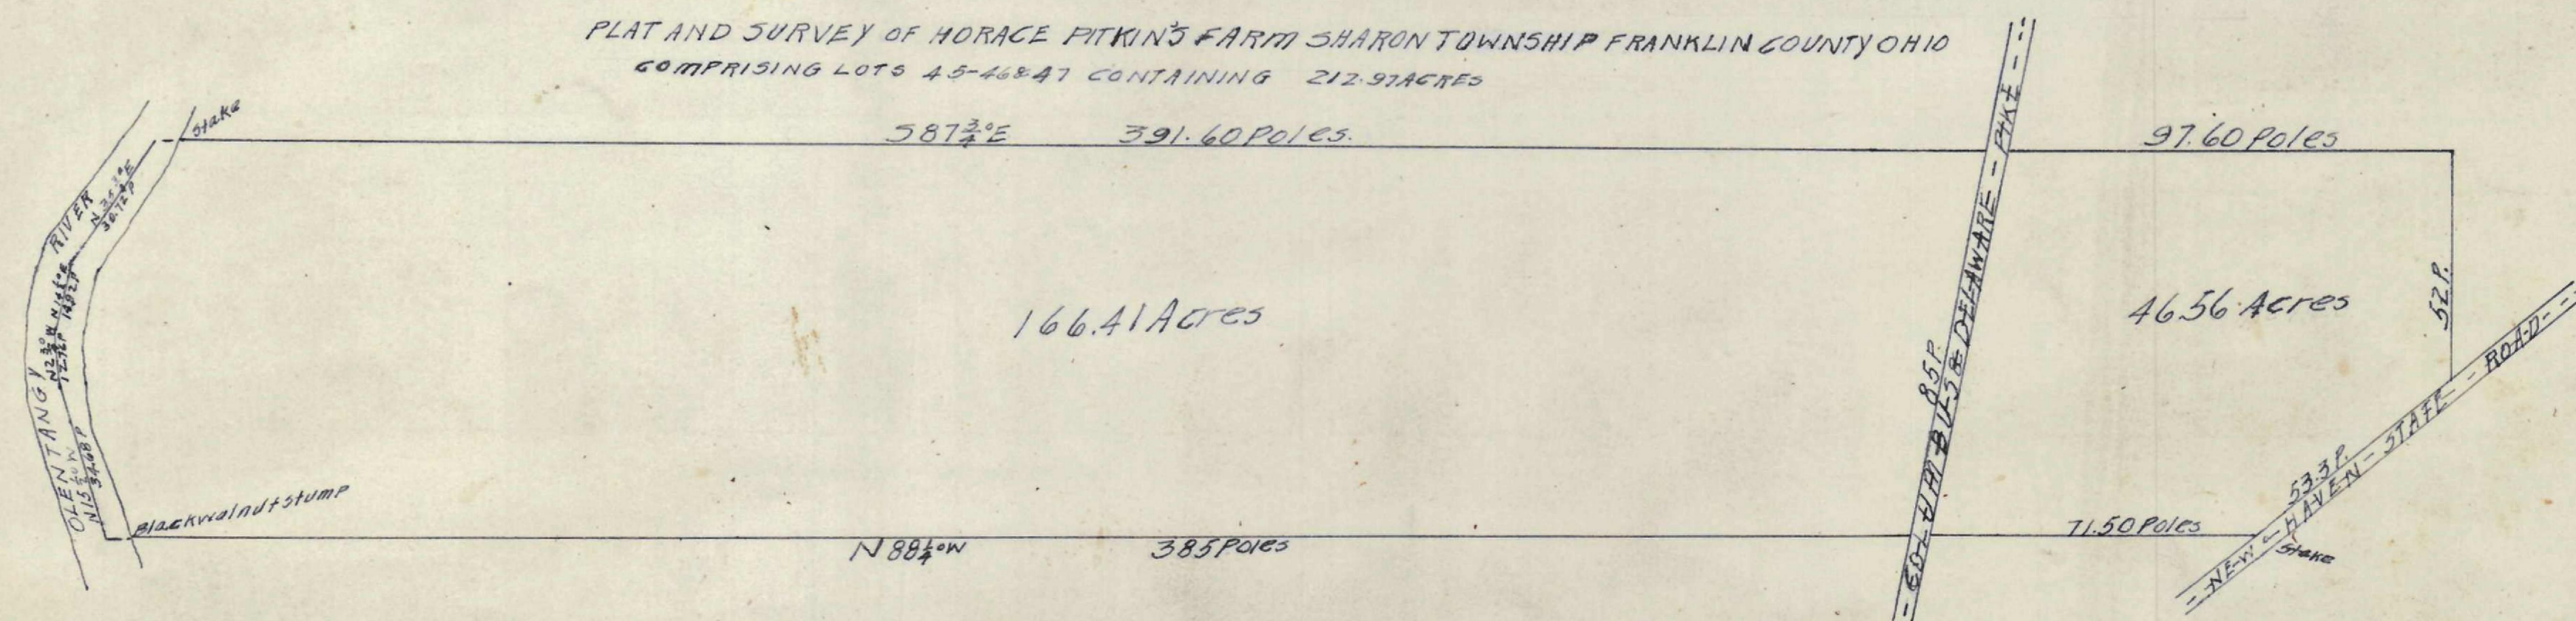 PLAT AND SURVEY OF HORACE PITKIN'S FARM SHARON TOWNSHIP FRANKLIN COUNTY OHIO
COMPRISING LOTS 45-46&47 CONTAINING 212.97 ACRES
Stake
S87¾°E 391.60 Poles.
97.60 Poles
OLENTANGY RIVER
N35¾°E
30.72P
N2¾°W
12.76P
N15½°W
34.68P
166.41 Acres
COLUMBUS & DELAWARE - PIKE
85P.
46.56 Acres
52P.
NEW - HAVEN - STATE - ROAD
53.3P.
Blackwalnut Stump
N88¼°W 385 Poles
71.50 Poles
Stake